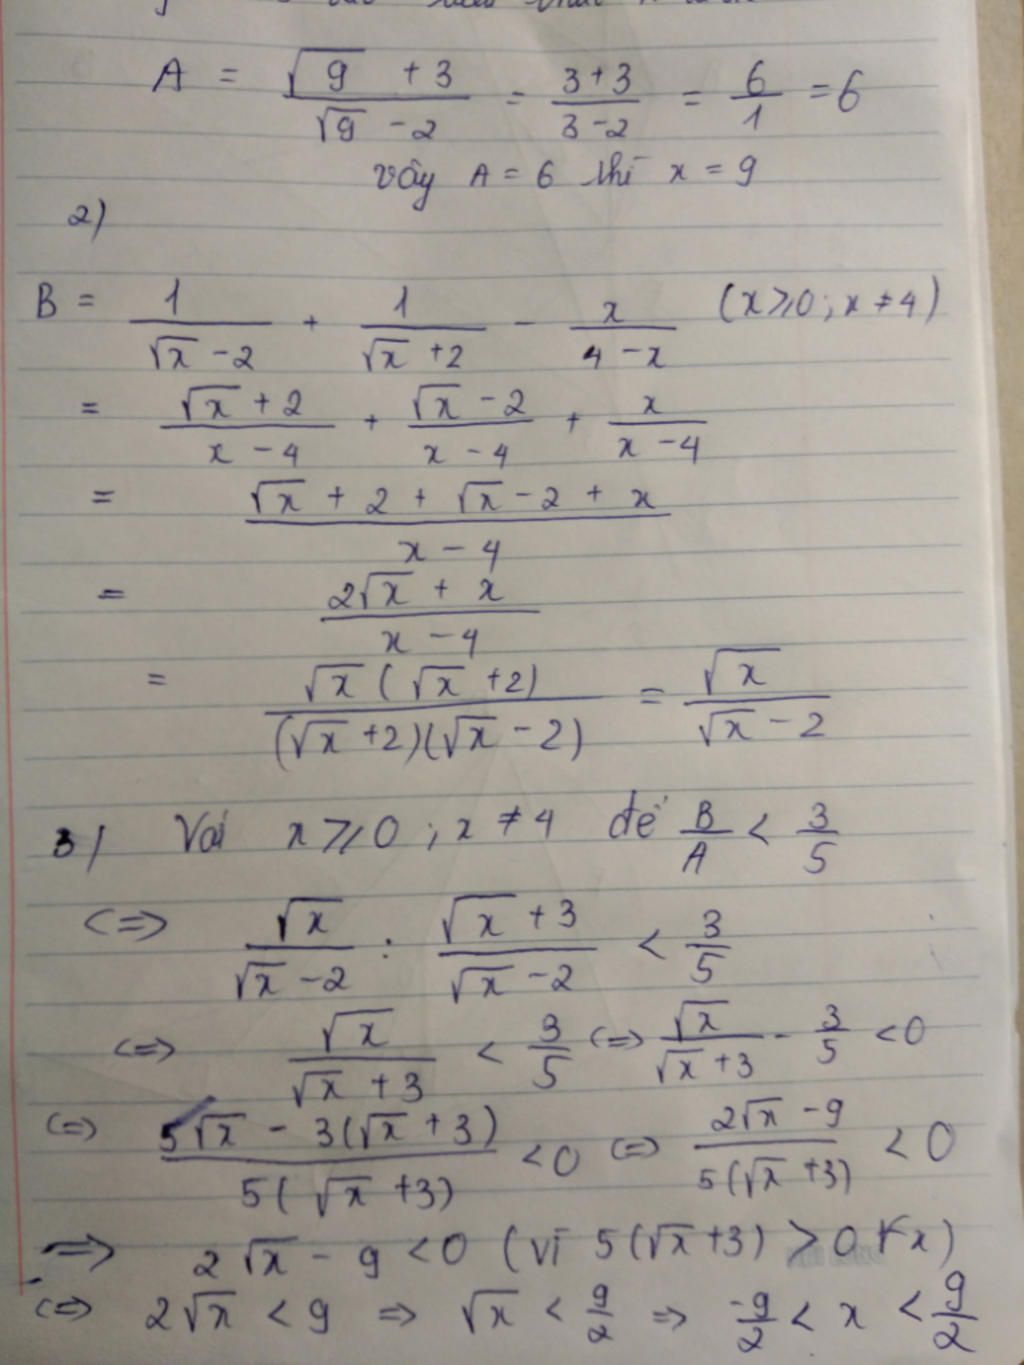 A = (√9 + 3)/(√9 - 2) = (3+3)/(3-2) = 6/1 = 6
vây A = 6 thì x = 9
2)
B = 1/(√x - 2) + 1/(√x + 2) - x/(4 - x) (x ≥ 0; x ≠ 4)
= (√x + 2)/(x - 4) + (√x - 2)/(x - 4) + x/(x - 4)
= (√x + 2 + √x - 2 + x)/(x - 4)
= (2√x + x)/(x - 4)
= √x(√x + 2)/((√x + 2)(√x - 2)) = √x/(√x - 2)
3/ Với x ≥ 0; x ≠ 4 để B/A < 3/5
<=> √x/(√x - 2) : (√x + 3)/(√x - 2) < 3/5
<=> √x/(√x + 3) < 3/5 <=> √x/(√x + 3) - 3/5 < 0
<=> (5√x - 3(√x + 3))/(5(√x + 3)) < 0 <=> (2√x - 9)/(5(√x + 3)) < 0
=> 2√x - 9 < 0 (vì 5(√x + 3) > 0 ∀x)
<=> 2√x < 9 => √x < 9/2 => -9/2 < x < 9/2